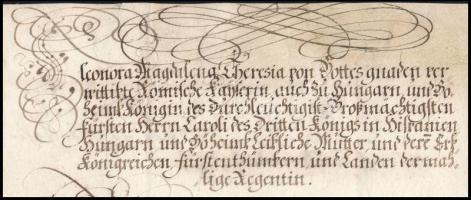 Eleonora Magdalena Theresia von Gottes gnaden ver
wittibte Römische Kayserin, auch zu Hungarn, und Bö
heimb Königin, des Durchleuchtigist-Großmächtigsten
Fürsten Herrn Caroli des Dritten Königs in Hispanien
Hungarn und Böheimb Leibliche Mutter, und dere Erb
Königreichen, Fürstenthümbern, und Landen dermah-
lige Regentin.